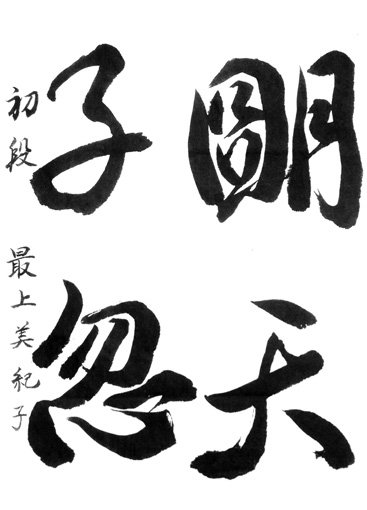 朙天
子忽
初段 最上美紀子